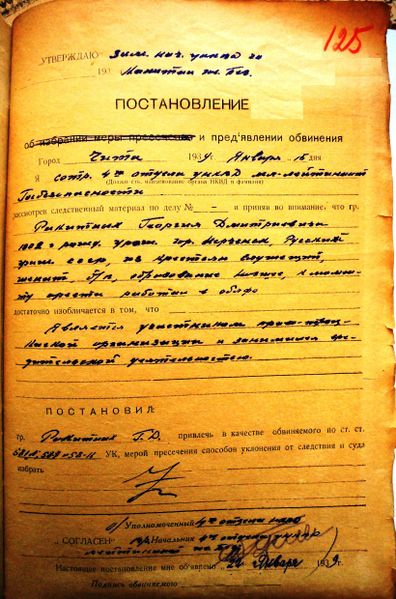 125
„УТВЕРЖДАЮ" Зам. нач. УНКВД ЧО
193 Капитан
ПОСТАНОВЛЕНИЕ
об избрании меры пресечения и пред'явлении обвинения
Город Чита 1939 Января 15 дня
Я сотр. 4го отдела УНКВД мл-лейтенант
Госбезопасности
(Должность, наименование органа НКВД и фамилия)
рассмотрев следственный материал по делу № — и приняв во внимание, что гр.
Ракитных Георгия Дмитриевича
1902 г. рожд. урож. гор. Нерчинск, Русский
гр-н СССР, из крестьян служащий,
женат, б/п, образование низшее, к момен-
ту ареста работал в облфо
достаточно изобличается в том, что
Является участником право-троц-
кистской организации и занимался вре-
дительской деятельностью.
ПОСТАНОВИЛ:
гр. Ракитных Г.Д. привлечь в качестве обвиняемого по ст. ст.
58-11 УК, мерой пресечения способов уклонения от следствия и суда
избрать
о/Уполномоченный 4го отдела
„СОГЛАСЕН" Начальник 4го отдела УНКВД
лейтенант
Настоящее постановление мне об'явлено „24" Января 1939г.
Подпись обвиняемого